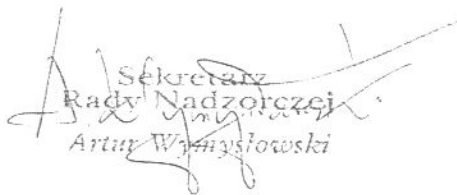 Sekretarz
Rady Nadzorczej
Artur Wymysłowski